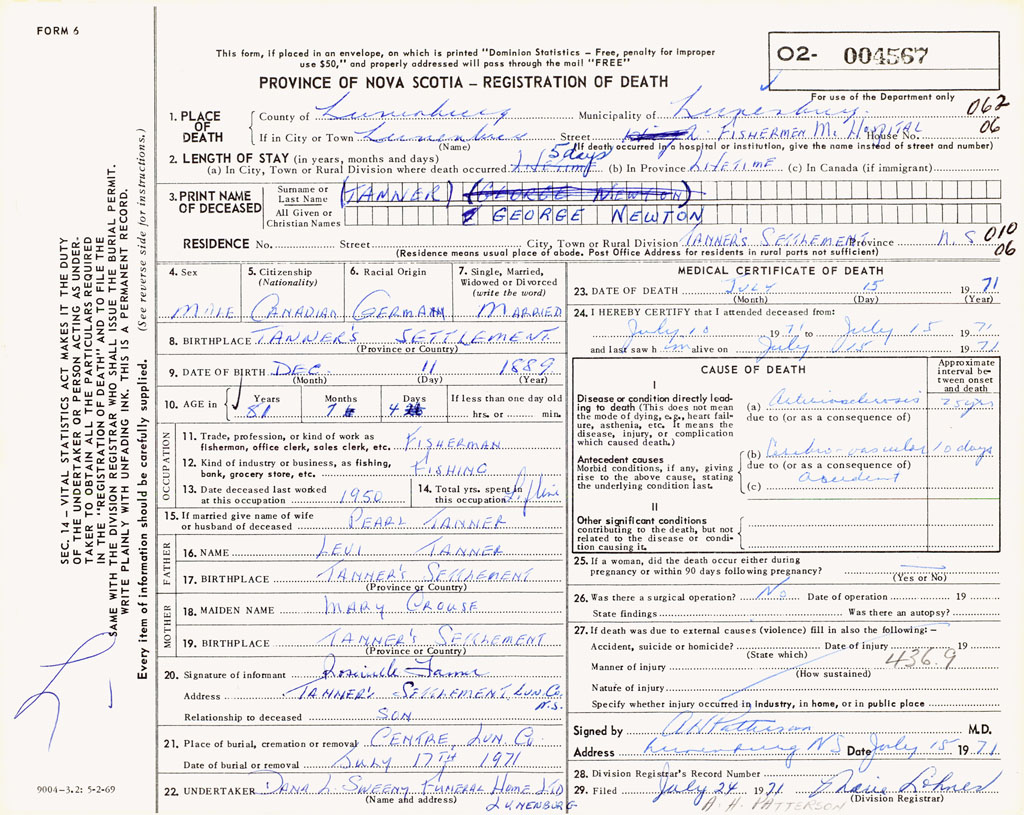 FORM 6
This form, if placed in an envelope, on which is printed "Dominion Statistics – Free, penalty for improper
use $50," and properly addressed will pass through the mail "FREE"
O2- 004567
PROVINCE OF NOVA SCOTIA – REGISTRATION OF DEATH
For use of the Department only
1. PLACE OF DEATH
County of Lunenburg Municipality of Lunenburg 062
If in City or Town Lunenburg Street FISHERMEN M. HOSPITAL House No. 06
(Name) (If death occurred in a hospital or institution, give the name instead of street and number)
2. LENGTH OF STAY (in years, months and days) 5 days
(a) In City, Town or Rural Division where death occurred LIFETIME (b) In Province LIFETIME (c) In Canada (if immigrant)
3. PRINT NAME OF DECEASED
Surname or Last Name (TANNER) (GEORGE NEWTON)
All Given or Christian Names GEORGE NEWTON
RESIDENCE No. Street City, Town or Rural Division TANNER'S SETTLEMENT Province N.S 010
06
(Residence means usual place of abode. Post Office Address for residents in rural parts not sufficient)
4. Sex MALE
5. Citizenship (Nationality) CANADIAN
6. Racial Origin GERMAN
7. Single, Married, Widowed or Divorced (write the word) MARRIED
8. BIRTHPLACE TANNER'S SETTLEMENT
(Province or Country)
9. DATE OF BIRTH DEC. 11 1889
(Month) (Day) (Year)
10. AGE in Years Months Days If less than one day old
81 7 4 hrs. or min.
OCCUPATION
11. Trade, profession, or kind of work as
fisherman, office clerk, sales clerk, etc. FISHERMAN
12. Kind of industry or business, as fishing,
bank, grocery store, etc. FISHING
13. Date deceased last worked
at this occupation 1950
14. Total yrs. spent in
this occupation Lifetime
15. If married give name of wife
or husband of deceased PEARL TANNER
FATHER
16. NAME LEVI TANNER
17. BIRTHPLACE TANNER'S SETTLEMENT
(Province or Country)
MOTHER
18. MAIDEN NAME MARY CROUSE
19. BIRTHPLACE TANNER'S SETTLEMENT
(Province or Country)
20. Signature of informant
Address TANNER'S SETTLEMENT, LUN. CO.
N.S.
Relationship to deceased SON
21. Place of burial, cremation or removal CENTRE, LUN. CO
Date of burial or removal JULY 17TH 1971
22. UNDERTAKER DANA L. SWEENY FUNERAL HOME LTD
(Name and address) LUNENBURG
MEDICAL CERTIFICATE OF DEATH
23. DATE OF DEATH JULY 15 19 71
(Month) (Day) (Year)
24. I HEREBY CERTIFY that I attended deceased from:
July 10 19 71 to July 15 19 71
and last saw h im alive on July 15 19 71
CAUSE OF DEATH
Approximate interval between onset and death
I
Disease or condition directly leading to death (This does not mean the mode of dying, e.g., heart failure, asthenia, etc. It means the disease, injury, or complication which caused death.)
(a) Arteriosclerosis
due to (or as a consequence of)
Antecedent causes
Morbid conditions, if any, giving rise to the above cause, stating the underlying condition last.
(b) Cerebro-vascular 10 days
due to (or as a consequence of)
(c) accident
II
Other significant conditions
contributing to the death, but not related to the disease or condition causing it.
25. If a woman, did the death occur either during
pregnancy or within 90 days following pregnancy?
(Yes or No)
26. Was there a surgical operation? No Date of operation 19
State findings Was there an autopsy?
27. If death was due to external causes (violence) fill in also the following: –
Accident, suicide or homicide? Date of injury 19
(State which) 436.9
Manner of injury
(How sustained)
Nature of injury
Specify whether injury occurred in industry, in home, or in public place
Signed by AH Patterson M.D.
Address Lunenburg NS Date July 15 19 71
28. Division Registrar's Record Number
29. Filed July 24 19 71
(Division Registrar)
A. H. PATTERSON
SEC. 14 – VITAL STATISTICS ACT MAKES IT THE DUTY
OF THE UNDERTAKER OR PERSON ACTING AS UNDER-
TAKER TO OBTAIN ALL THE PARTICULARS REQUIRED
IN THE "REGISTRATION OF DEATH" AND TO FILE THE
SAME WITH THE DIVISION REGISTRAR WHO SHALL ISSUE THE BURIAL PERMIT.
WRITE PLAINLY WITH UNFADING INK. THIS IS A PERMANENT RECORD.
Every item of information should be carefully supplied. (See reverse side for instructions.)
9004-3.2: 5-2-69